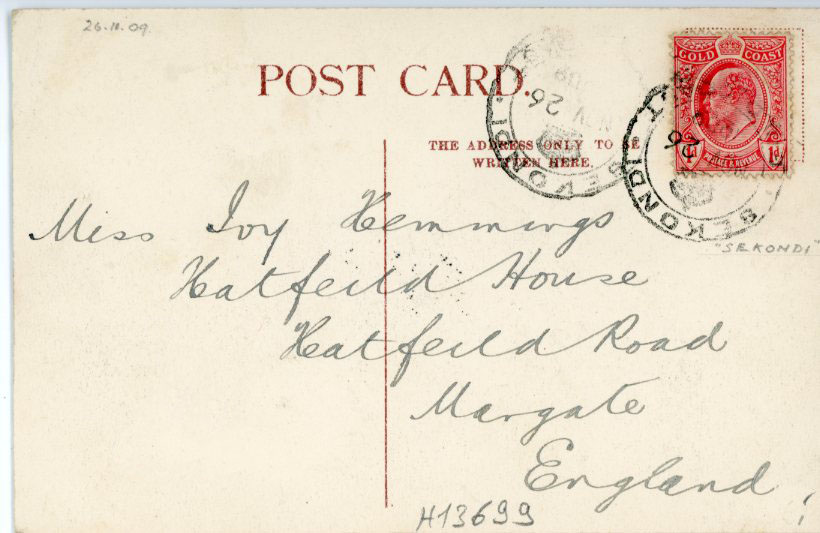 26.11.09
POST CARD.
THE ADDRESS ONLY TO BE
WRITTEN HERE.
GOLD COAST
1d POSTAGE & REVENUE 1d
SEKONDI
26
NOV
09
SEKONDI
26
"SEKONDI"
Miss Ivy Hemmings
Hatfeild House
Hatfeild Road
Margate
England
H13699